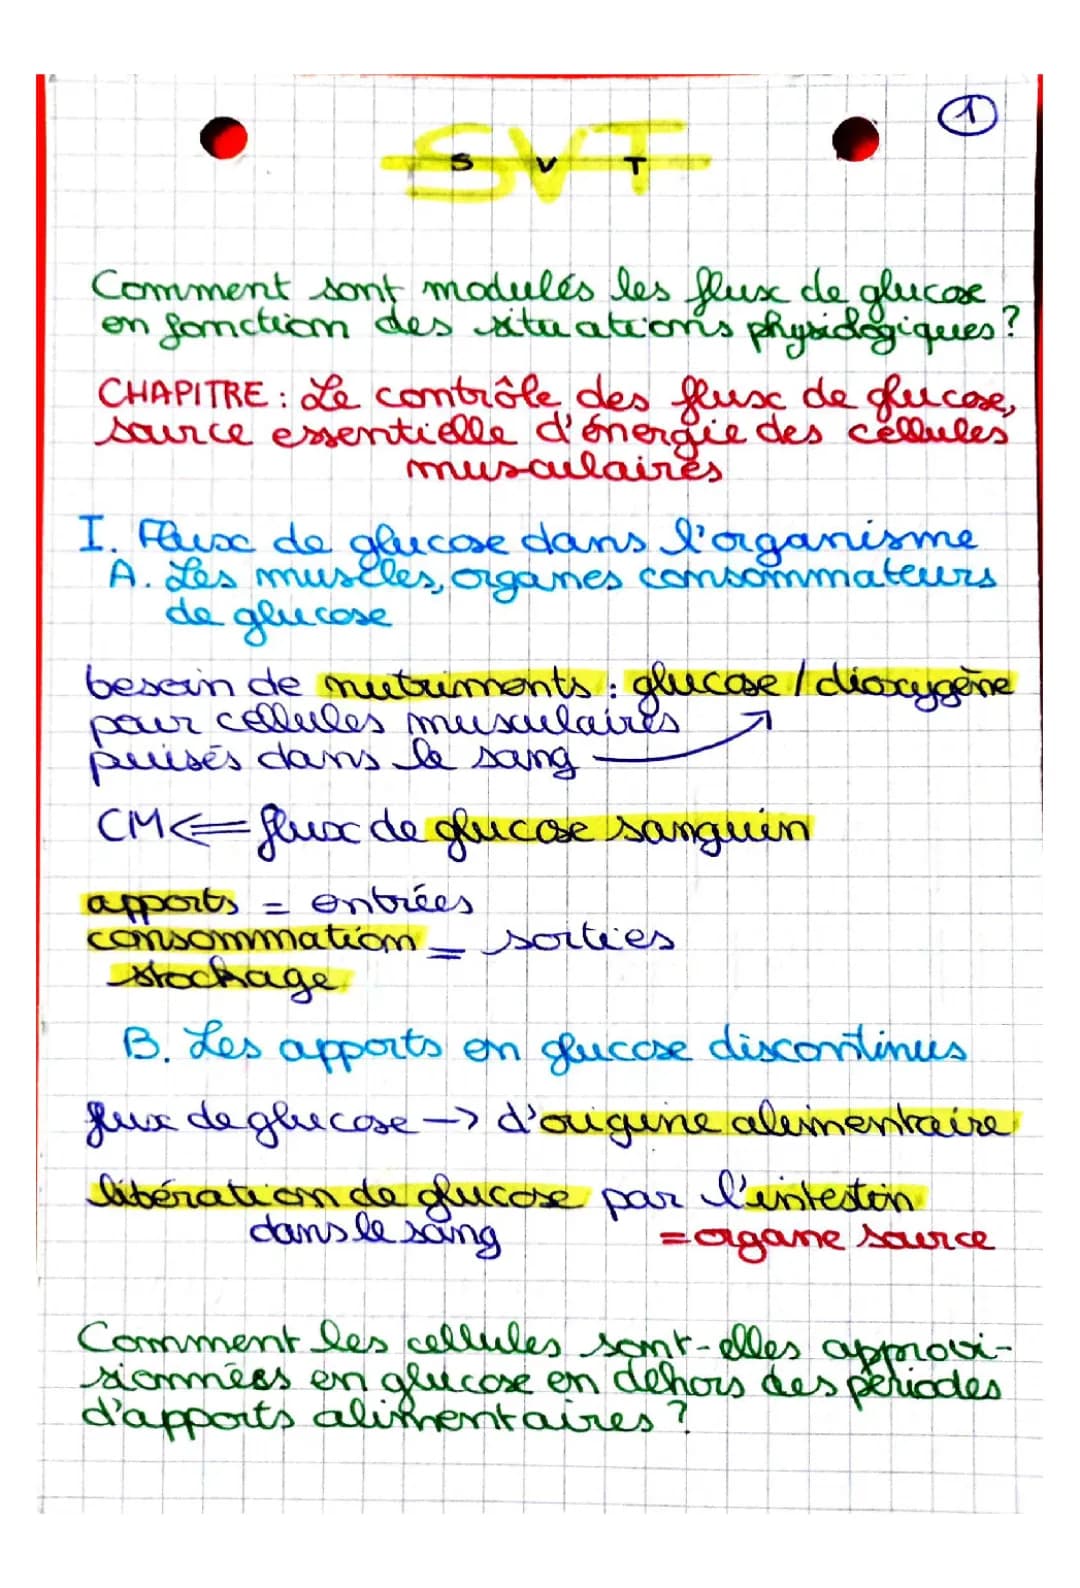 1
SVT
S V T
Comment sont modulés les flux de glucose
en fonction des situations physiologiques ?
CHAPITRE : Le contrôle des flux de glucose,
source essentielle d'énergie des cellules
musculaires
I. Flux de glucose dans l'organisme
A. Les muscles, organes consommateurs
de glucose
besoin de nutriments : glucose / dioxygène
pour cellules musculaires
puisés dans le sang
CM <= flux de glucose sanguin
apports = entrées
consommation = sorties
stockage
B. Les apports en glucose discontinus
flux de glucose -> d'origine alimentaire
libération de glucose par l'intestin
dans le sang = organe source
Comment les cellules sont-elles approvi-
sionnées en glucose en dehors des périodes
d'apports alimentaires ?